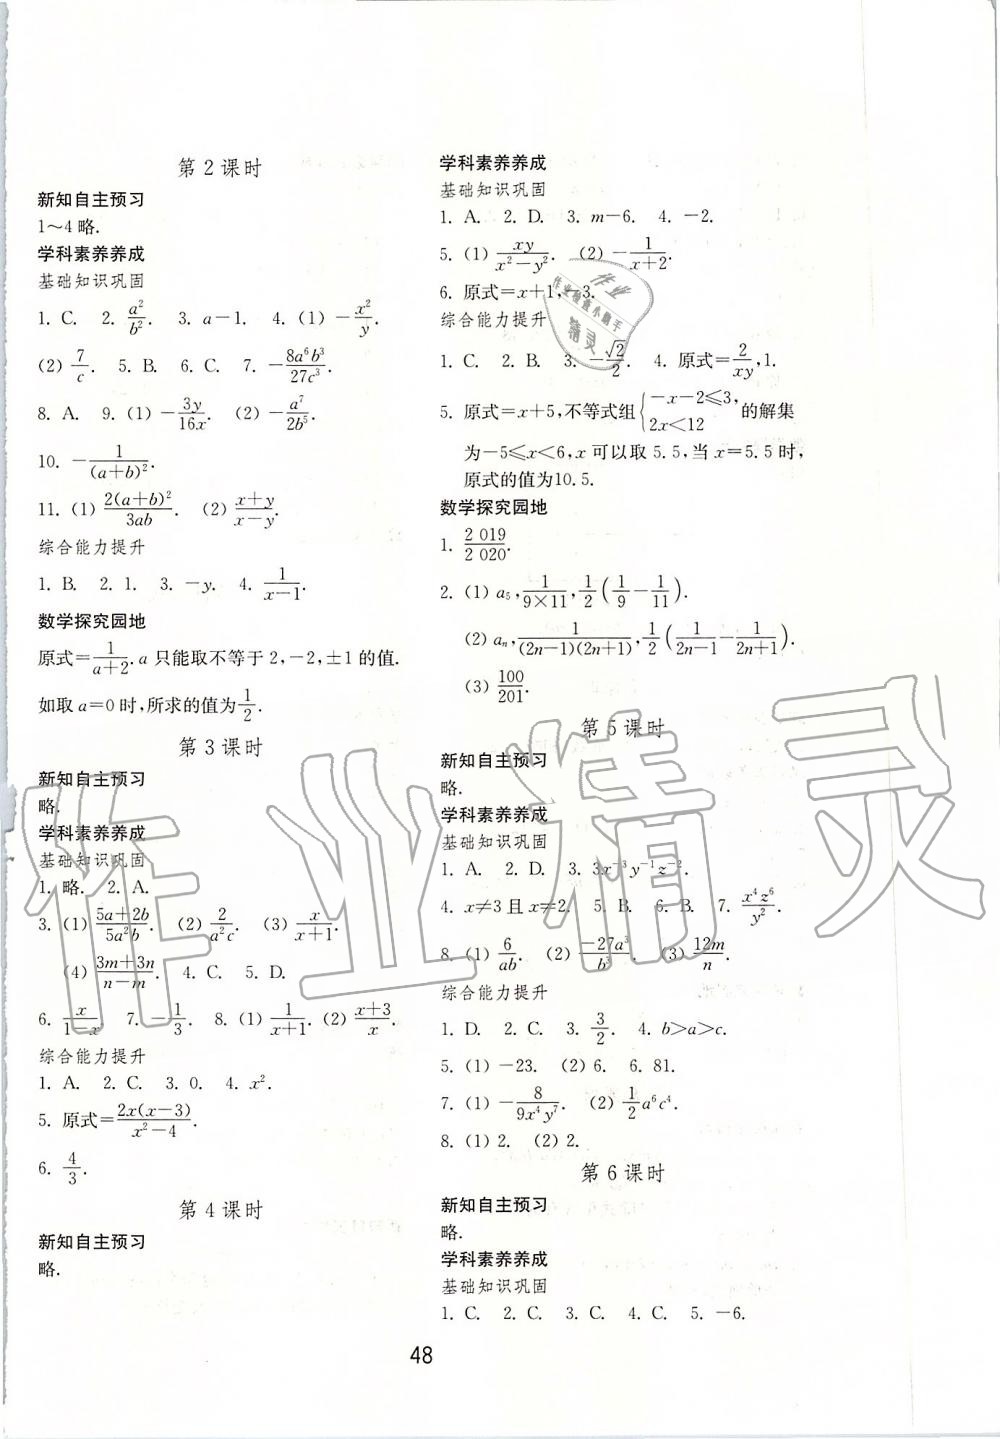 第2课时
新知自主预习
1～4 略.
学科素养养成
基础知识巩固
1. C.  2. a²/b².  3. a－1.  4. (1) －x²/y.
(2) 7/c.  5. B.  6. C.  7. －8a⁶b³/27c³.
8. A.  9. (1) －3y/16x.  (2) －a⁷/2b⁵.
10. －1/(a＋b)².
11. (1) 2(a＋b)²/3ab.  (2) (x＋y)/(x－y).
综合能力提升
1. B.  2. 1.  3. －y.  4. 1/(x－1).
数学探究园地
原式＝1/(a＋2).a 只能取不等于 2,－2,±1 的值.
如取 a＝0 时,所求的值为 1/2.
第3课时
新知自主预习
略.
学科素养养成
基础知识巩固
1. 略.  2. A.
3. (1) (5a＋2b)/5a²b.  (2) 2/a²c.  (3) x/(x＋1).
(4) (3m＋3n)/(n－m).  4. C.  5. D.
6. x/(1－x).  7. －1/3.  8. (1) 1/(x＋1). (2) (x＋3)/x.
综合能力提升
1. A.  2. C.  3. 0.  4. x².
5. 原式＝2x(x－3)/(x²－4).
6. 4/3.
第4课时
新知自主预习
略.
学科素养养成
基础知识巩固
1. A.  2. D.  3. m－6.  4. －2.
5. (1) xy/(x²－y²).  (2) －1/(x＋2).
6. 原式＝x＋1,－3.
综合能力提升
1. C.  2. B.  3. －√2/2.  4. 原式＝2/xy,1.
5. 原式＝x＋5,不等式组{－x－2≤3, 2x＜12 的解集
为－5≤x＜6,x 可以取 5.5,当 x＝5.5 时,
原式的值为10.5.
数学探究园地
1. 2 019/2 020.
2. (1) a₅,1/(9×11),1/2(1/9－1/11).
(2) aₙ,1/((2n－1)(2n＋1)),1/2(1/(2n－1)－1/(2n＋1)).
(3) 100/201.
第5课时
新知自主预习
略.
学科素养养成
基础知识巩固
1. A.  2. D.  3. 3x⁻³y⁻¹z⁻².
4. x≠3 且 x≠2.  5. B.  6. B.  7. x⁴z⁶/y².
8. (1) 6/ab.  (2) －27a³/b³.  (3) 12m/n.
综合能力提升
1. D.  2. C.  3. 3/2.  4. b＞a＞c.
5. (1) －23.  (2) 6.  6. 81.
7. (1) －8/9x⁴y⁷.  (2) 1/2a⁶c⁴.
8. (1) 2.  (2) 2.
第6课时
新知自主预习
略.
学科素养养成
基础知识巩固
1. C.  2. C.  3. C.  4. C.  5. －6.
48
作业精灵
作业
作业检查小助手
精灵